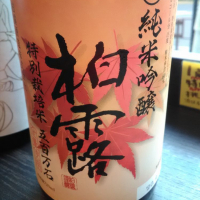 純米吟醸
柏露
特別栽培米 五百万石